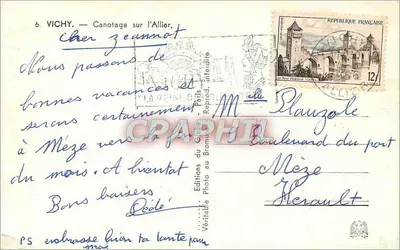 6. VICHY. — Canotage sur l'Allier.
cher zeannot
Nous passons de
bonnes vacances et
serons certainement
à Mèze vers la fin
du mois. A bientot
Bons baisers
Dédé
PS embrasse bien ta tante pour
moi
Editions du
Véritable Photo au Bromure
Paris
Reprod. interdite
REPUBLIQUE FRANÇAISE
12F
Mlle Plauzole
3 Boulevard du port
Mèze
Herault
CPAPHIL